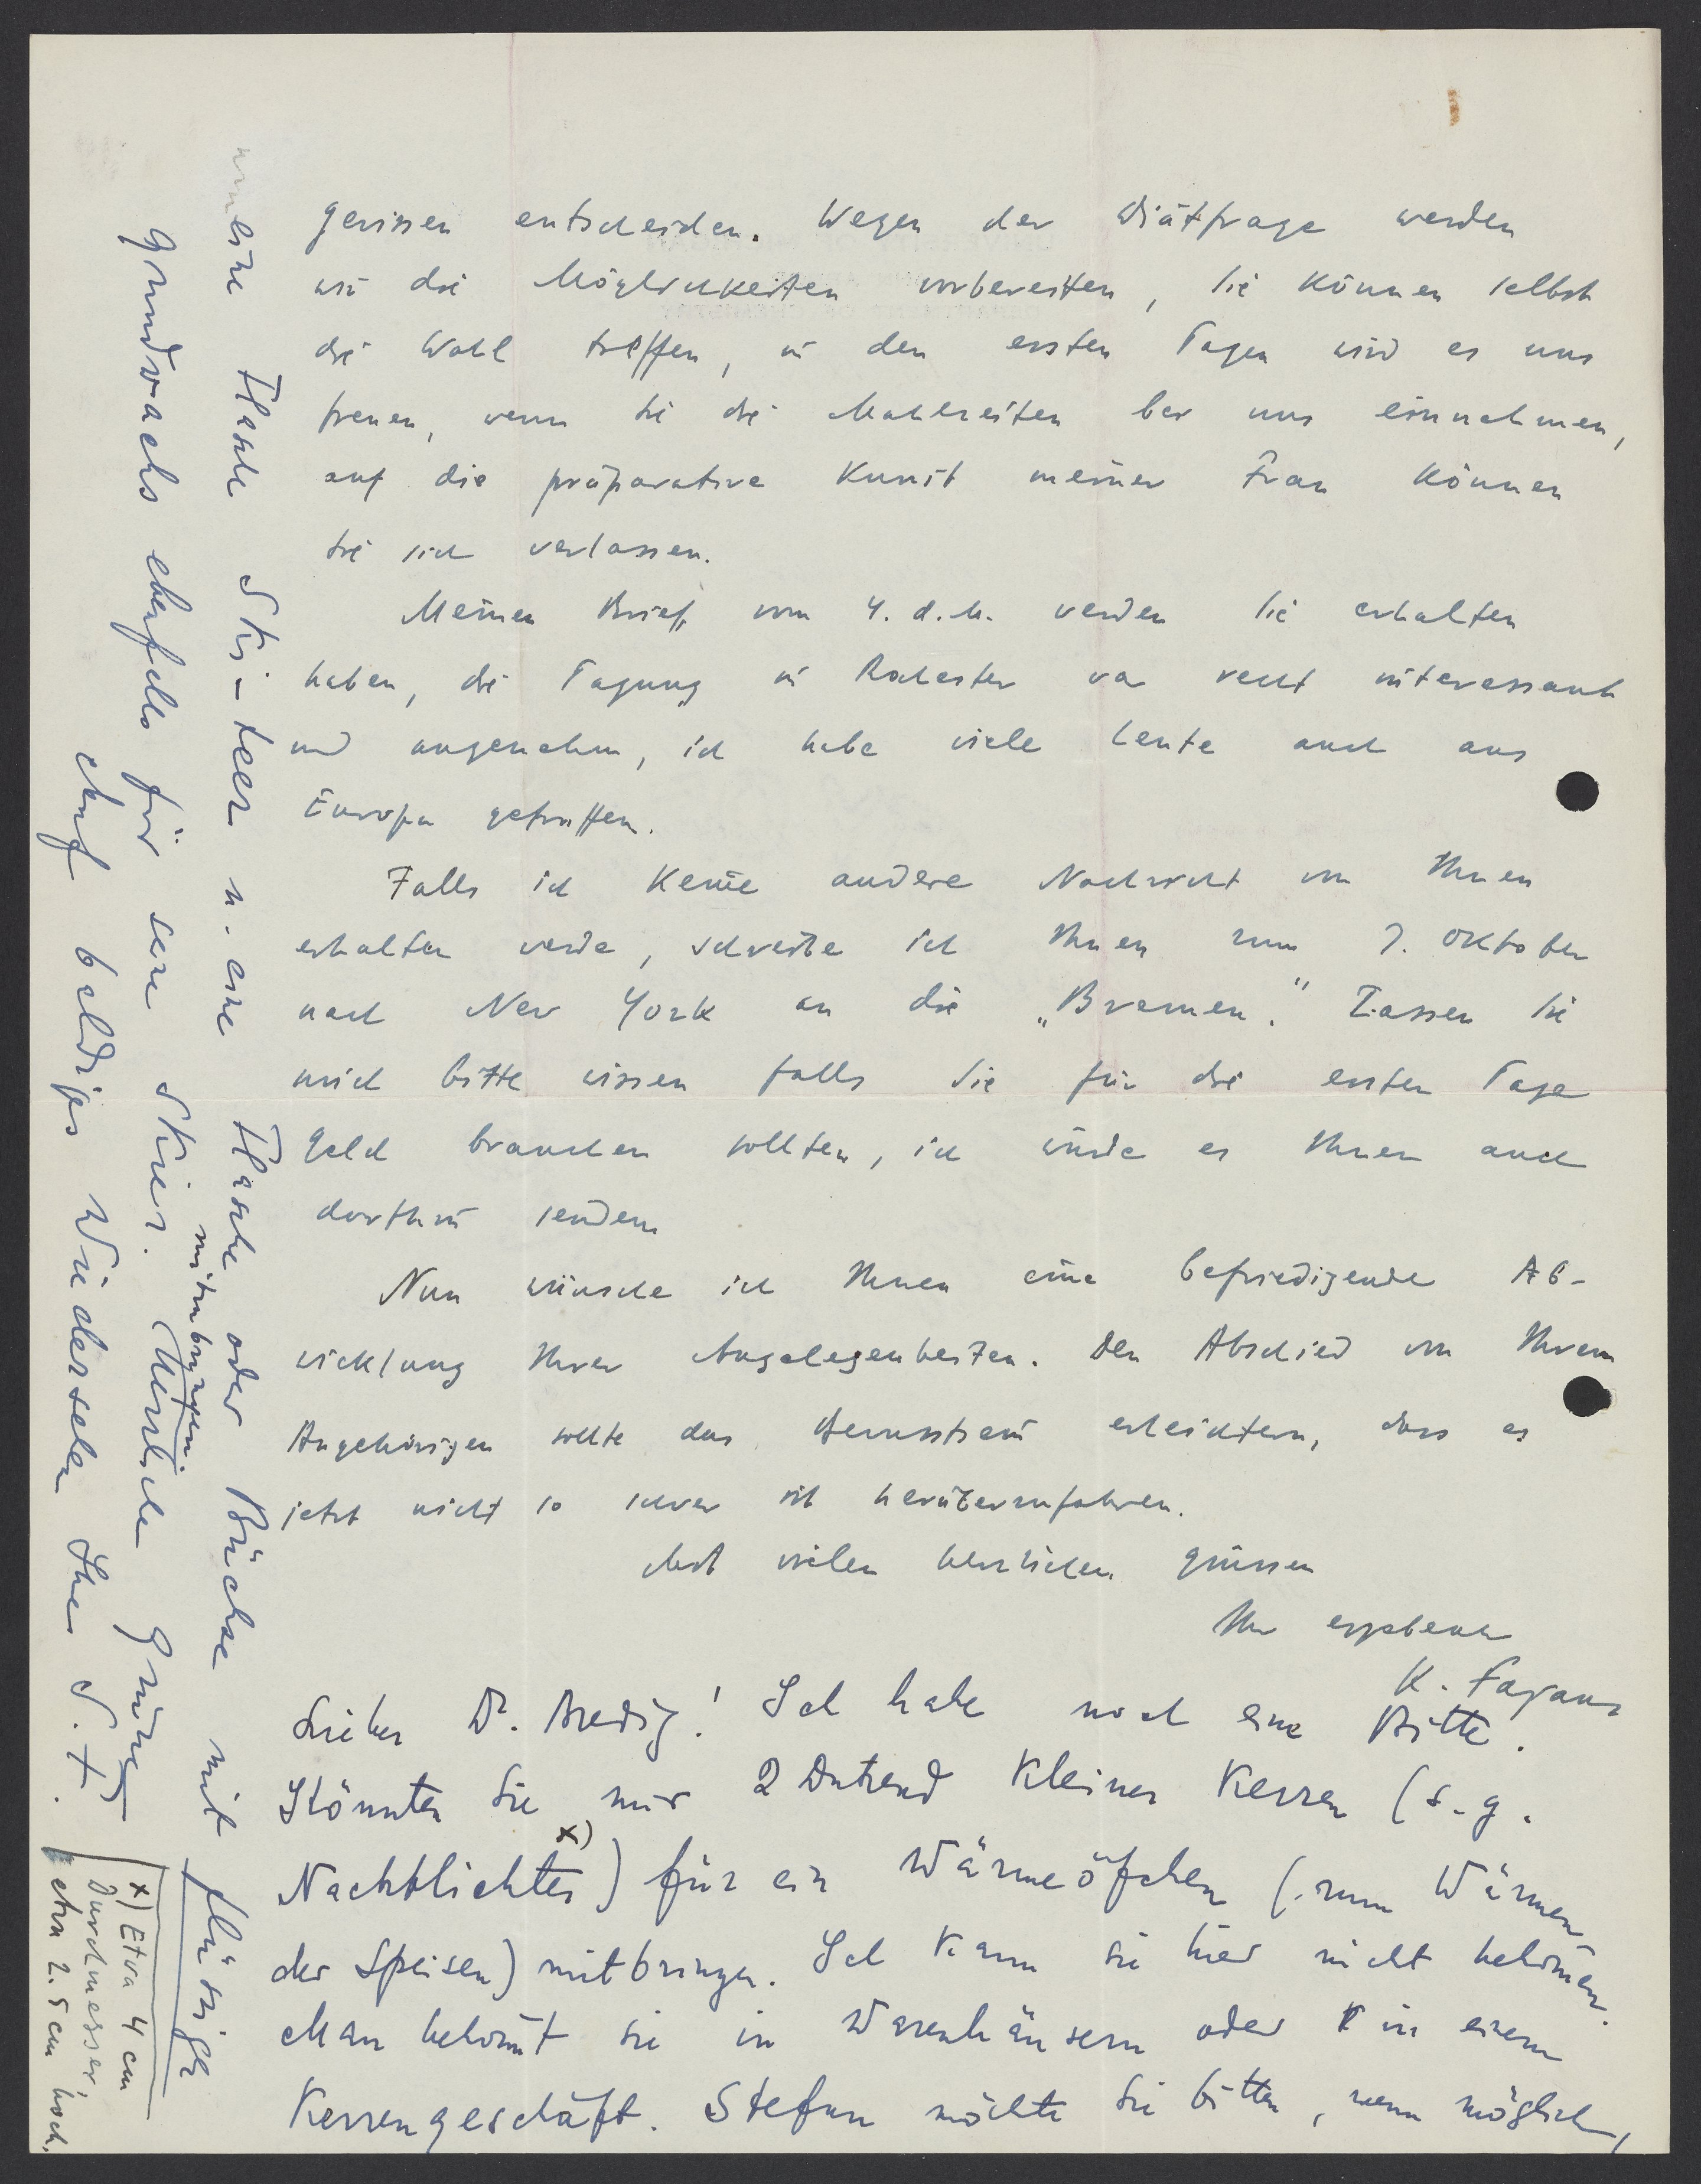 gewissen entscheiden. Wegen der Diätfrage werden
wir die Möglichkeiten vorbereiten, Sie können selbst
die Wahl treffen, in den ersten Tagen wird es uns
freuen, wenn Sie die Mahlzeiten bei uns einnehmen,
auf die präparative Kunst meiner Frau können
Sie sich verlassen.
Meinen Brief vom 4. d. M. werden Sie erhalten
haben, die Tagung in Rochester war recht interessant
und angenehm, ich habe viele Leute auch aus
Europa getroffen.
Falls ich keine andere Nachricht von Ihnen
erhalten werde, schreibe ich Ihnen zum 7. Oktober
nach New York an die „Bremen“. Lassen Sie
mich bitte wissen falls Sie für die ersten Tage
Geld brauchen sollten, ich würde es Ihnen auch
dorthin senden
Nun wünsche ich Ihnen eine befriedigende Ab-
wicklung Ihrer Angelegenheiten. Den Abschied von Ihren
Angehörigen sollte das Bewusstsein erleichtern, dass es
jetzt nicht so schwer ist herüberzufahren.
Mit vielen herzlichen Grüssen
Ihr ergebener
K. Fajans
Lieber Dr. Bredig! Ich habe noch eine Bitte.
Könnten Sie mir 2 Dutzend kleiner Kerzen (s. g.
Nachtlichter x)) für ein Wärmeöfchen (zum Wärmen
der Speisen) mitbringen. Ich kann sie hier nicht bekommen.
Man bekommt sie in Warenhäusern oder in einem
Kerzengeschäft. Stefan möchte Sie bitten, wenn möglich,
eine Flasche Ski-teer u. eine Flasche oder Büchse mit flüssiger
Grundwachs ebenfalls für seine Skier mitzubringen. Herzliche Grüsse
Auf baldiges Wiedersehen Ihre S. F.
x) Etwa 4 cm
Durchmesser,
etwa 2.5 cm hoch.